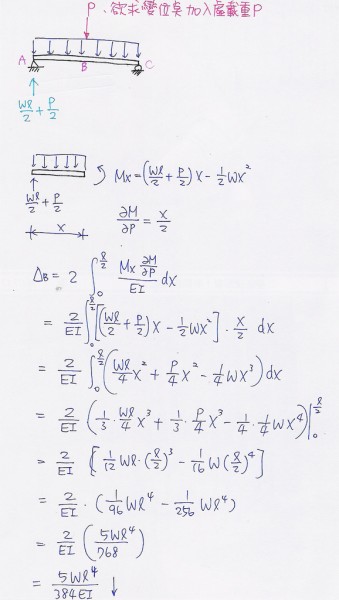 P、欲求變位處加入虛載重P
A B C
Wℓ/2 + P/2
Mx = (Wℓ/2 + P/2)X - 1/2 WX²
Wℓ/2 + P/2
∂M/∂P = X/2
X
ΔB = 2 ∫₀^(ℓ/2) (Mx ∂M/∂P)/EI dx
= 2/EI ∫₀^(ℓ/2) [(Wℓ/2 + P/2)X - 1/2 WX²] · X/2 dx
= 2/EI ∫₀^(ℓ/2) (Wℓ/4 X² + P/4 X² - 1/4 WX³) dX
= 2/EI (1/3 · Wℓ/4 X³ + 1/3 · P/4 X³ - 1/4 · 1/4 WX⁴) |₀^(ℓ/2)
= 2/EI [1/12 Wℓ · (ℓ/2)³ - 1/16 W(ℓ/2)⁴]
= 2/EI · (1/96 Wℓ⁴ - 1/256 Wℓ⁴)
= 2/EI (5Wℓ⁴/768)
= 5Wℓ⁴/384EI ↓